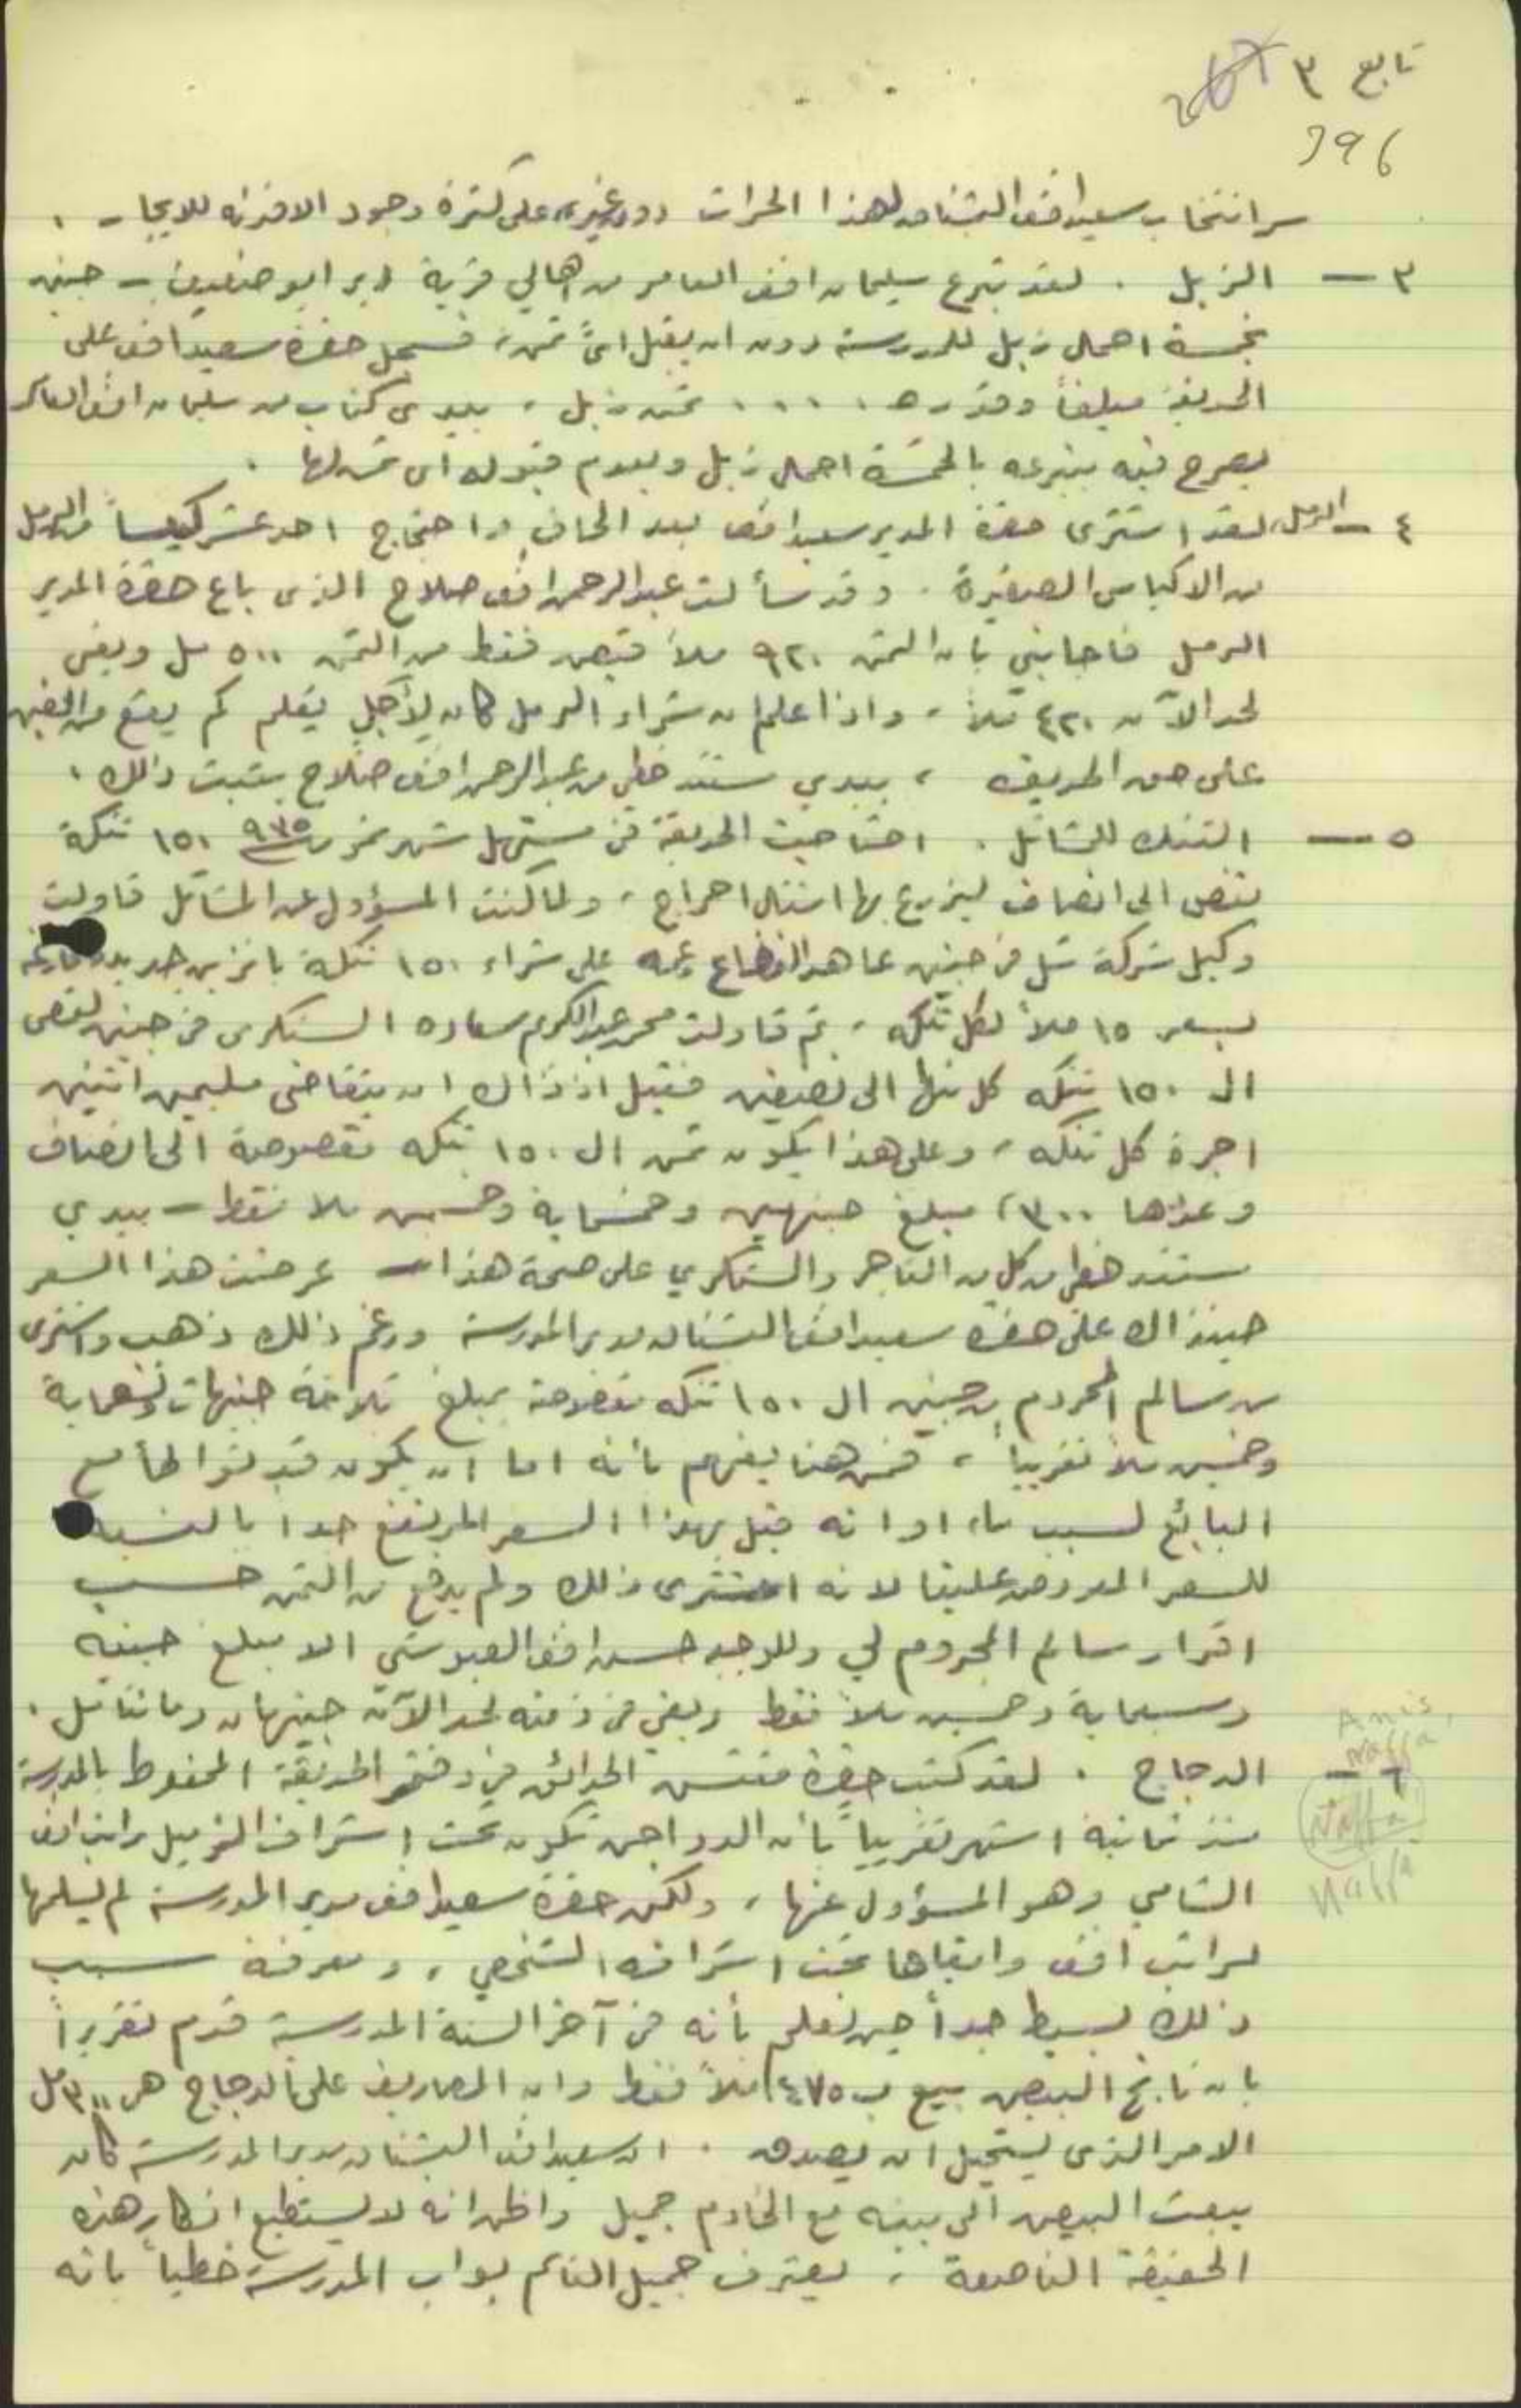 تابع ٣
396
سر انتخاب سعيد افندي البشناق لهذا الحراث دون غيره على كثرة وجود الافدنه للايجار .
٣ — الزبل . لقد تبرع سليمان افندي العامر من اهالي قرية دير ابو ضعيف - جنين
بخمسة احمال زبل للمدرسة دون ان يقبل اي ثمن، فسجل حضرة سعيد افندي على
الحديقة مبلغاً وقدره .... ثمن زبل ، بيدي كتاب من سليمان افندي العامر
يصرح فيه بتبرعه بالخمسة احمال زبل وبعدم قبوله اي ثمن لها .
٤ — الرمل، لقد اشترى حضرة المدير سعيد افندي بعد الحاف واحتجاج احد عشر كيساً من الرمل
من الاكياس الصغيرة . وقد سألت عبد الرحمن افندي صلاح الذي باع حضرة المدير
الرمل فاجابني بان الثمن ٩٢٠ ملاً قبض فقط من الثمن ٥٠٠ مل وبقي
لحد الآن ٤٢٠ ملاً ، واذا علم ان شراء الرمل كان لأجل يعلم كم يقع من الغبن
على حق الحديقه ، بيدي سند خطي من عبد الرحمن افندي صلاح يثبت ذلك .
٥ — التنك للمشاتل . احتاجت الحديقة في مستهل شهر تموز سنة ٩٣٥ ١٥٠ تنكة
تقص الى انصاف ليزرع بها اشتال احراج ، ولما كنت المسؤول عن المشاتل قاولت
وكيل شركة شل في جنين عاهد القضاع وعمه على شراء ١٥٠ تنكة بانزين جديده
بسعر ١٥ ملاً لكل تنكه ، ثم قاولت محمد عبد الكريم سعاده السنكري في جنين لقص
ال ١٥٠ تنكه كل منها الى نصفين فقبل اذ ذاك ان يتقاضى مليمين اثنين
اجرة كل تنكه ، وعلى هذا يكون ثمن ال ١٥٠ تنكه مقصوصة الى انصاف
وعددها ٣٠٠، مبلغ جنيهين وخمسماية وخمسين ملا فقط - بيدي
سند خطي من كل من التاجر والسنكري على صحة هذا - عرضت هذا السعر
حينذاك على حضرة سعيد افندي البشناق مدير المدرسة ورغم ذلك ذهب واشترى
من سالم المحروم من جنين ال ١٥٠ تنكه مقصوصة بمبلغ ثلاثة جنيهات وتسعماية
وخمسين ملاً تقريباً ، فمن هنا يفهم بأنه اما ان يكون قد تواطأ مع
البائع لسبب ما، او انه قبل بهذا السعر المرتفع جدا بالنسبة
للسعر المعروض علينا لانه اشترى ذلك ولم يدفع من الثمن حسب
اقرار سالم المحروم لي وللوجيه حسن افندي العبوشي الا مبلغ جنيه
وسبعماية وخمسين ملاً فقط وبقي في ذمته لحد الآن جنيهان ومائتا مل .
٦ — الدجاج . لقد كتب حضرة مفتش الحدائق في دفتر الحديقة المحفوظ بالمدرسة
منذ ثمانية اشهر تقريباً بأن الدواجن تكون تحت اشراف الزميل راتب افندي
الشامي وهو المسؤول عنها ، ولكن حضرة سعيد افندي مدير المدرسة لم يسلمها
لراتب افندي وابقاها تحت اشرافه الشخصي ، ومعرفة سبب
ذلك بسيط جداً حين نعلم بأنه في آخر السنة المدرسية قدم تقريراً
بان ناتج البيض بيع ب ٤٧٥ ملاً فقط وان المصاريف على الدجاج هي ٣٠٠ مل
الامر الذي يستحيل ان يصدق . ان سعيد افندي البشناق مدير المدرسة كان
يبعث البيض الى بيته مع الخادم جميل واظن انه لا يستطيع انكار هذه
الحقيقة الناصعة ، يعترف جميل الغانم بواب المدرسة خطياً بانه
Anis
Naffa
Naffa
Naffa